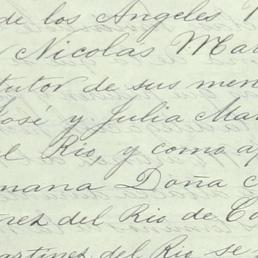 de los Angeles
Nicolas Mar
tutor de sus men
José y Julia Mar
el Rio, y como a
mana Doña C
nez del Rio de Co
artinez del Rio se